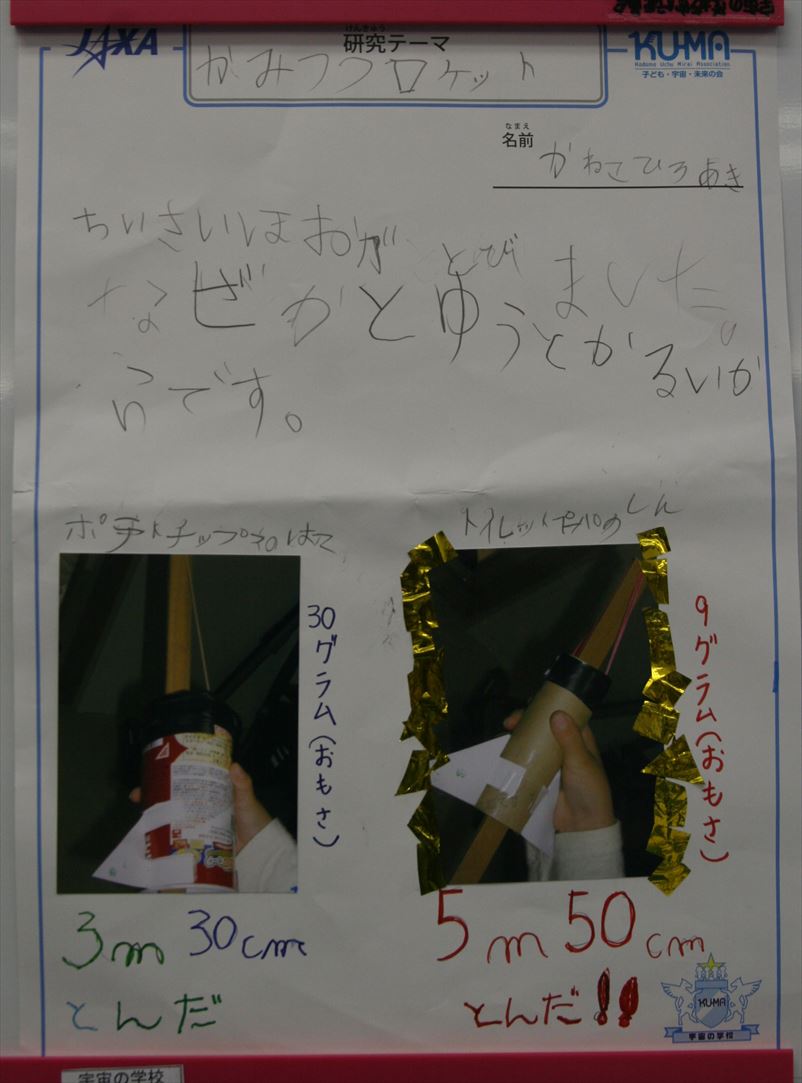 JAXA
けんきゅう
研究テーマ
かみコップロケット
KU-MA
Kodomo Uchu Mirai Association
子ども・宇宙・未来の会
なまえ
名前
かねこひろあき
ちいさいほおが
とびました。
なぜかとゆうとかるいか
らです。
ポテトチップスのはこ
トイレットペパのしん
30グラム(おもさ)
9グラム(おもさ)
3m30cm
とんだ
5m50cm
とんだ!!
KUMA
宇宙の学校
宇宙の学校